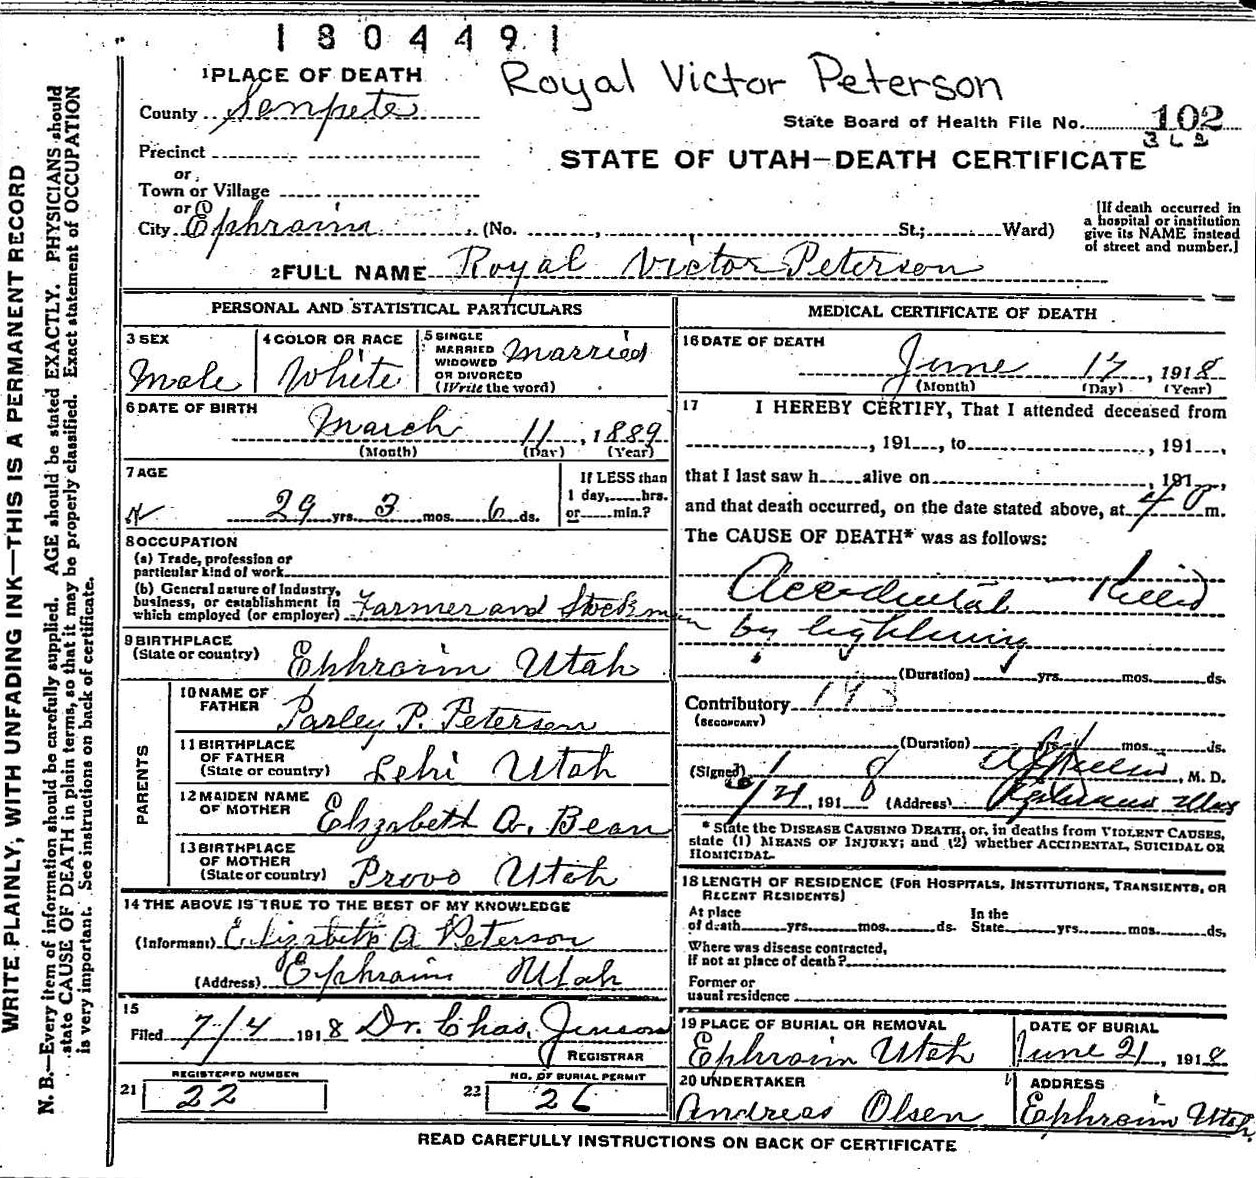 1804491
Royal Victor Peterson
1 PLACE OF DEATH
County Sanpete
State Board of Health File No. 102
Precinct
or
Town or Village
or
City Ephraim (No. , St.; Ward)
STATE OF UTAH—DEATH CERTIFICATE
[If death occurred in
a hospital or institution
give its NAME instead
of street and number.]
2 FULL NAME Royal Victor Peterson
PERSONAL AND STATISTICAL PARTICULARS
3 SEX
Male
4 COLOR OR RACE
White
5 SINGLE
MARRIED
WIDOWED
OR DIVORCED
(Write the word)
Married
6 DATE OF BIRTH
March 11, 1889
(Month) (Day) (Year)
7 AGE
29 yrs. 3 mos. 6 ds.
If LESS than
1 day, hrs.
or min.?
8 OCCUPATION
(a) Trade, profession or
particular kind of work
(b) General nature of Industry,
business, or establishment in
which employed (or employer) Farmer and Stockman
9 BIRTHPLACE
(State or country) Ephraim Utah
PARENTS
10 NAME OF
FATHER Parley P. Petersen
11 BIRTHPLACE
OF FATHER
(State or country) Lehi Utah
12 MAIDEN NAME
OF MOTHER Elizabeth A. Bean
13 BIRTHPLACE
OF MOTHER
(State or country) Provo Utah
14 THE ABOVE IS TRUE TO THE BEST OF MY KNOWLEDGE
(Informant) Elizabeth A Peterson
(Address) Ephraim Utah
15
Filed 7/4 1918 Dr. Chas. Jenson
REGISTRAR
21 REGISTERED NUMBER
22
22 NO. OF BURIAL PERMIT
26
MEDICAL CERTIFICATE OF DEATH
16 DATE OF DEATH
June 17, 1918
(Month) (Day) (Year)
17 I HEREBY CERTIFY, That I attended deceased from
, 191 , to , 191 ,
that I last saw h alive on , 191 ,
and that death occurred, on the date stated above, at m.
The CAUSE OF DEATH* was as follows:
Accidental Killed
by lightning
(Duration) yrs. mos. ds.
Contributory
(SECONDARY)
(Duration) yrs. mos. ds.
(Signed) , M. D.
191 8 (Address)
* State the DISEASE CAUSING DEATH, or, in deaths from VIOLENT CAUSES,
state (1) MEANS OF INJURY; and (2) whether ACCIDENTAL, SUICIDAL OR
HOMICIDAL.
18 LENGTH OF RESIDENCE (FOR HOSPITALS, INSTITUTIONS, TRANSIENTS, OR
RECENT RESIDENTS)
At place
of death yrs. mos. ds.
In the
State yrs. mos. ds.
Where was disease contracted,
if not at place of death?
Former or
usual residence
19 PLACE OF BURIAL OR REMOVAL
Ephraim Utah
DATE OF BURIAL
June 21, 1918
20 UNDERTAKER
Andreas Olsen
ADDRESS
Ephraim Utah.
READ CAREFULLY INSTRUCTIONS ON BACK OF CERTIFICATE
WRITE PLAINLY, WITH UNFADING INK—THIS IS A PERMANENT RECORD
N. B.—Every item of information should be carefully supplied. AGE should be stated EXACTLY. PHYSICIANS should
state CAUSE OF DEATH in plain terms, so that it may be properly classified. Exact statement of OCCUPATION
is very important. See instructions on back of certificate.